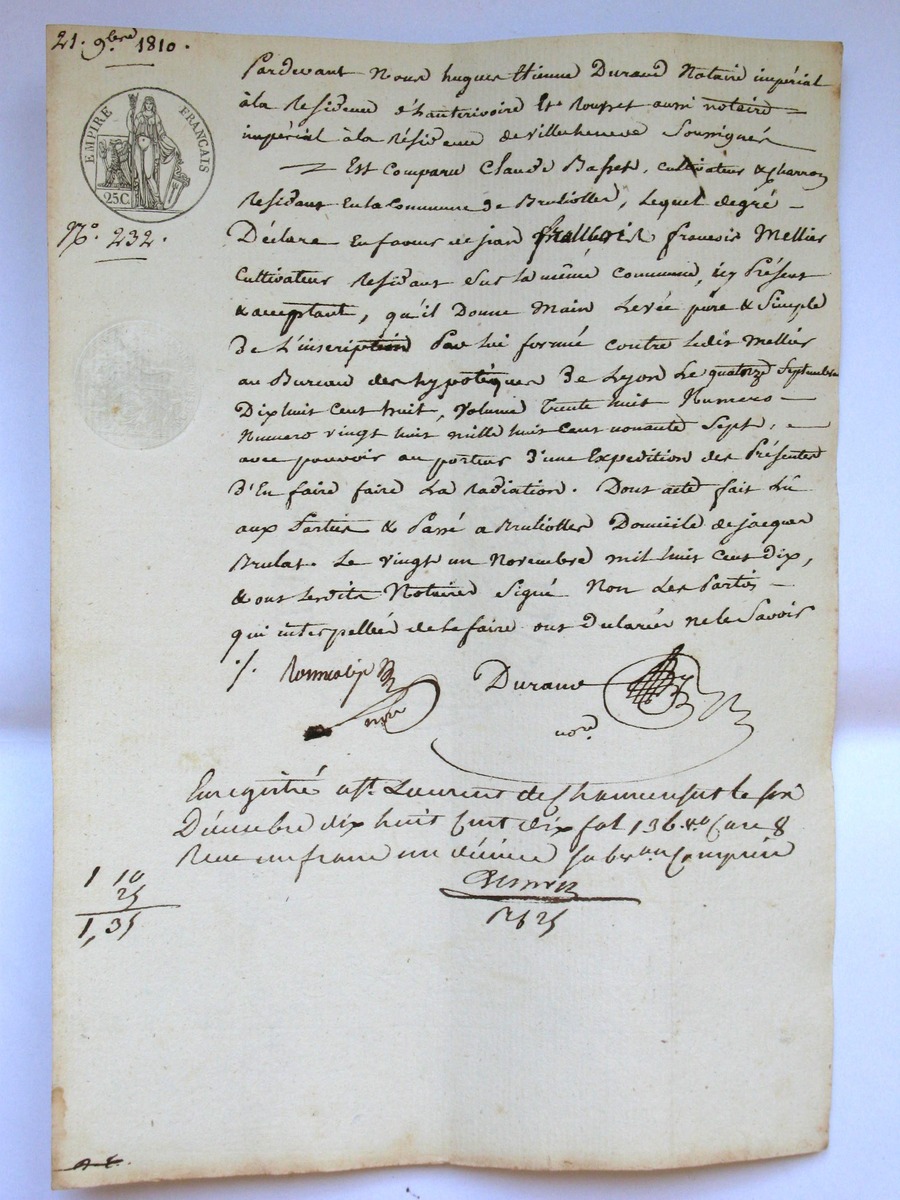 21. 9bre 1810.
EMPIRE FRANCAIS
25C.
N.o 232.
Pardevant Nous hugues Etienne Durand Notaire impérial
à la Residence d'hauterivoire Et Rousset aussi notaire
impérial à la Résidence de Villecheneve Soussignés
Est Comparu Claude Basset, cultivateur & Charron
Residant En la Commune de Brulioller, Lequel de gré
Déclare En faveur de jean françois Mellier
Cultivateur Residant Sur la même Commune, icy Présent
& acceptant, qu'il Donne Main Levée pure & Simple
De L'inscription Par lui formé contre ledit Mellier
au Bureau des hypotèques De Lyon Le quatorze Septembre
Dix huit Cent huit, Volume Trente huit Numero
Numero vingt huit mille huit Cent nonante Sept,
avec pouvoir au porteur D'une Expedition des Présentes
D'En faire faire La radiation. Dont acte fait Lu
aux Parties & Passé a Brulioller Domicile de jacques
Brulas. Le vingt un Novembre mil huit Cent Dix,
& ont Lesdits Notaires Signé Non Les Parties
qui interpellées de le faire ont Déclarées ne le Savoir
Durand
nore.
Enregistré a St. Laurent de Chamousset le six
Décembre dix huit Cent dix fol 136 vo Case 8
Reçu un franc un décime Subvon Comprise
1 10
25
1,35